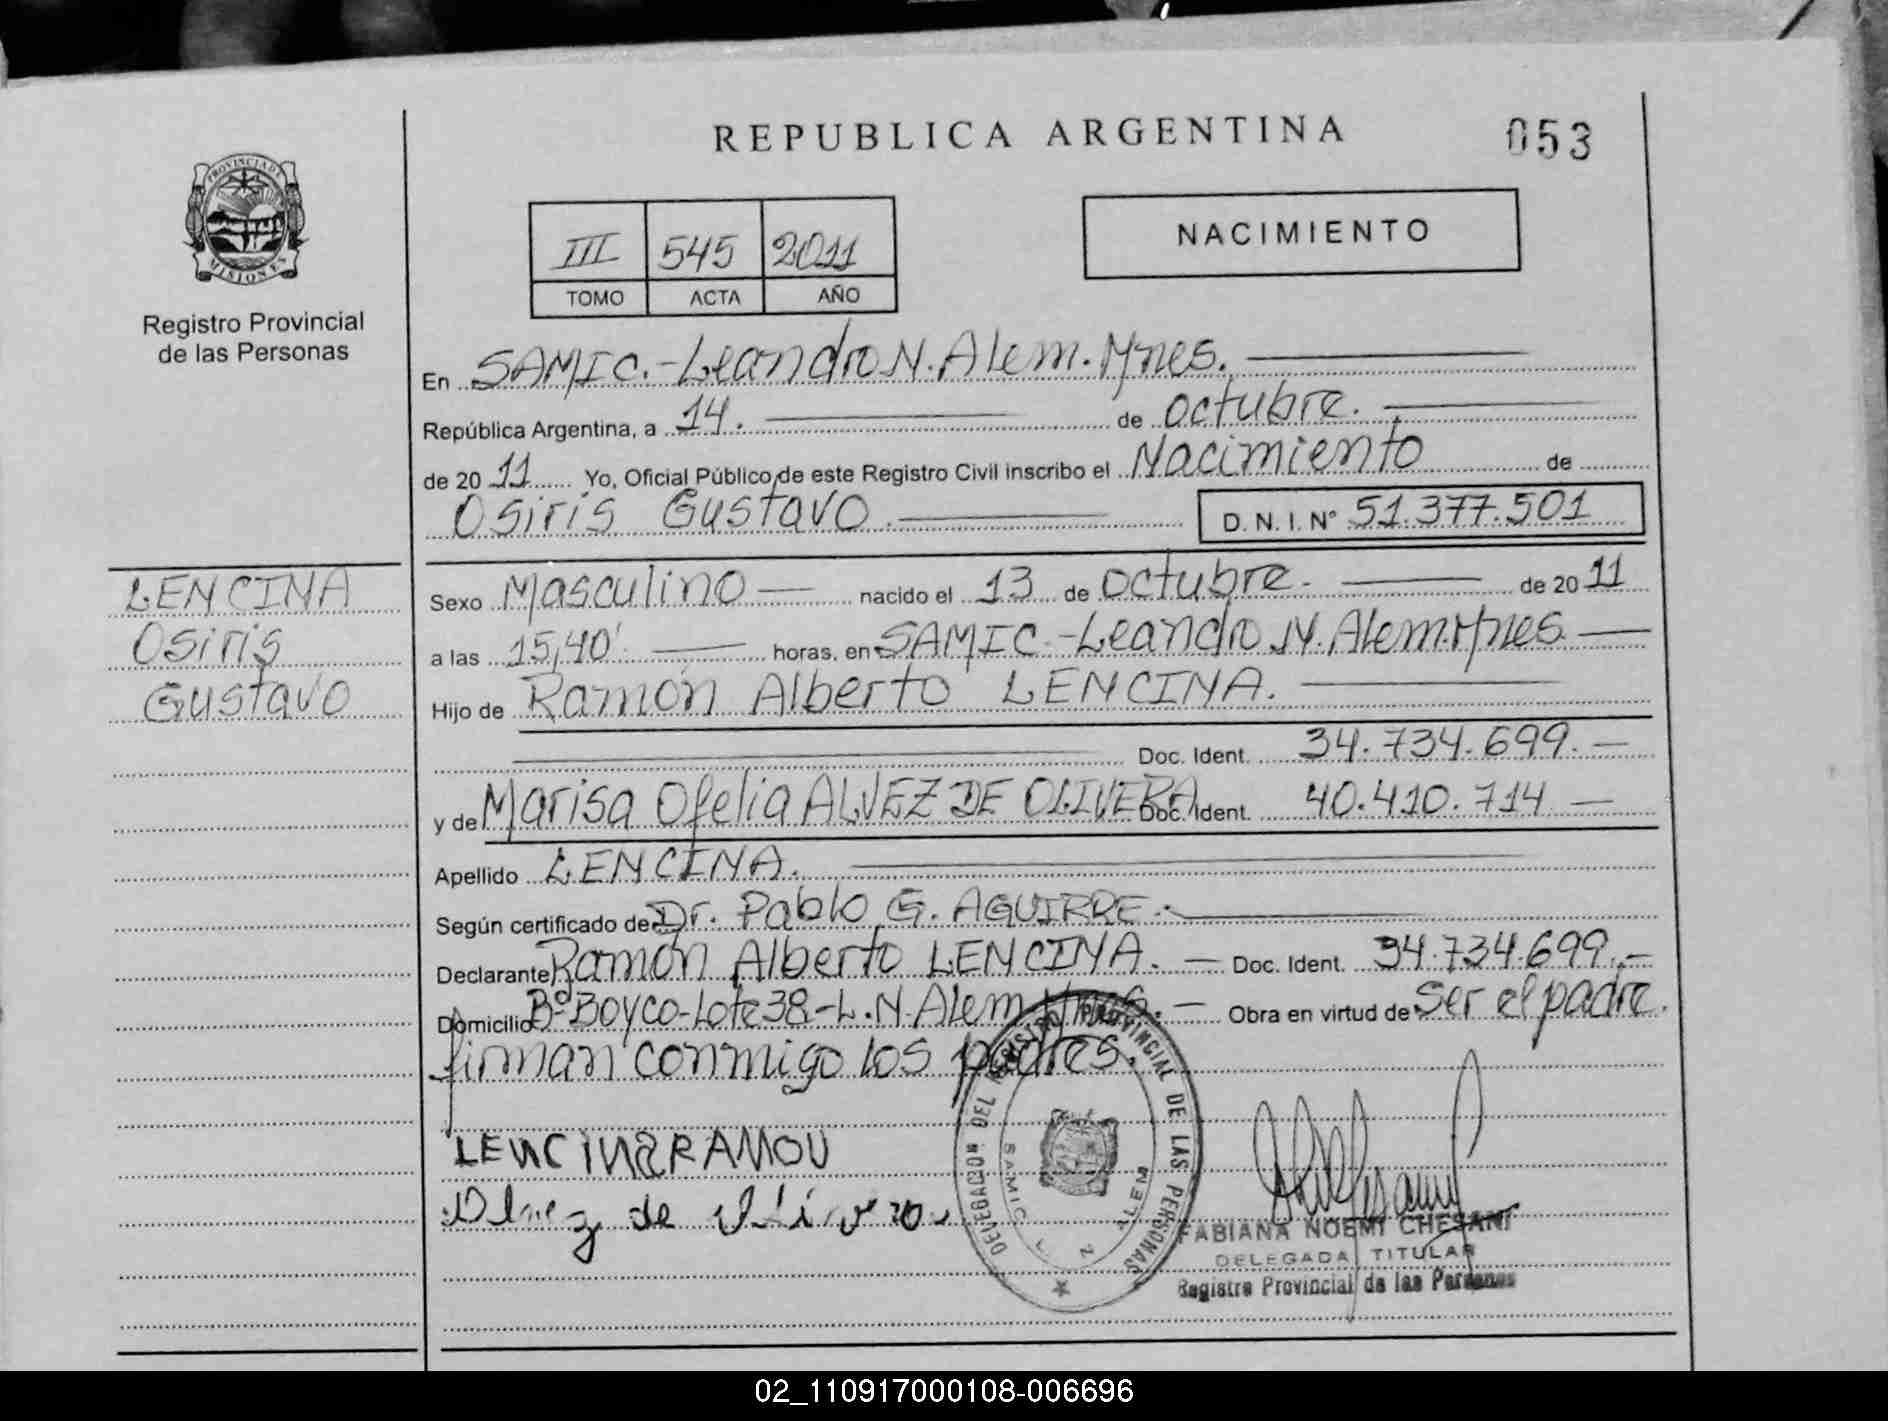 REPUBLICA ARGENTINA
053
PROVINCIA DE
MISIONES
Registro Provincial
de las Personas
III 545 2011
TOMO ACTA AÑO
NACIMIENTO
En SAMIC.-Leandro N. Alem. Mnes.
República Argentina, a 14. de octubre.
de 2011 Yo, Oficial Público de este Registro Civil inscribo el Nacimiento de
Osiris Gustavo. D. N. I. N° 51.377.501
LENCINA
Osiris
Gustavo
Sexo Masculino nacido el 13 de octubre. de 2011
a las 15,40' horas, en SAMIC.-Leandro N. Alem. Mnes.
Hijo de Ramón Alberto LENCINA.
Doc. Ident. 34.734.699.
y de Marisa Ofelia ALVEZ DE OLIVERA Doc. Ident. 40.410.714
Apellido LENCINA.
Según certificado de Dr. Pablo G. AGUIRRE.
Declarante Ramón Alberto LENCINA. Doc. Ident. 34.734.699.
Domicilio Bº Boyco-Lote 38-L.N. Alem Mnes. Obra en virtud de Ser el padre.
firman conmigo los padres.
LENCINA RAMON
DELEGACION DEL REGISTRO PROVINCIAL DE LAS PERSONAS
SAMIC L N ALEM
de
FABIANA NOEMI CHESANI
DELEGADA TITULAR
Registro Provincial de las Personas
02_110917000108-006696